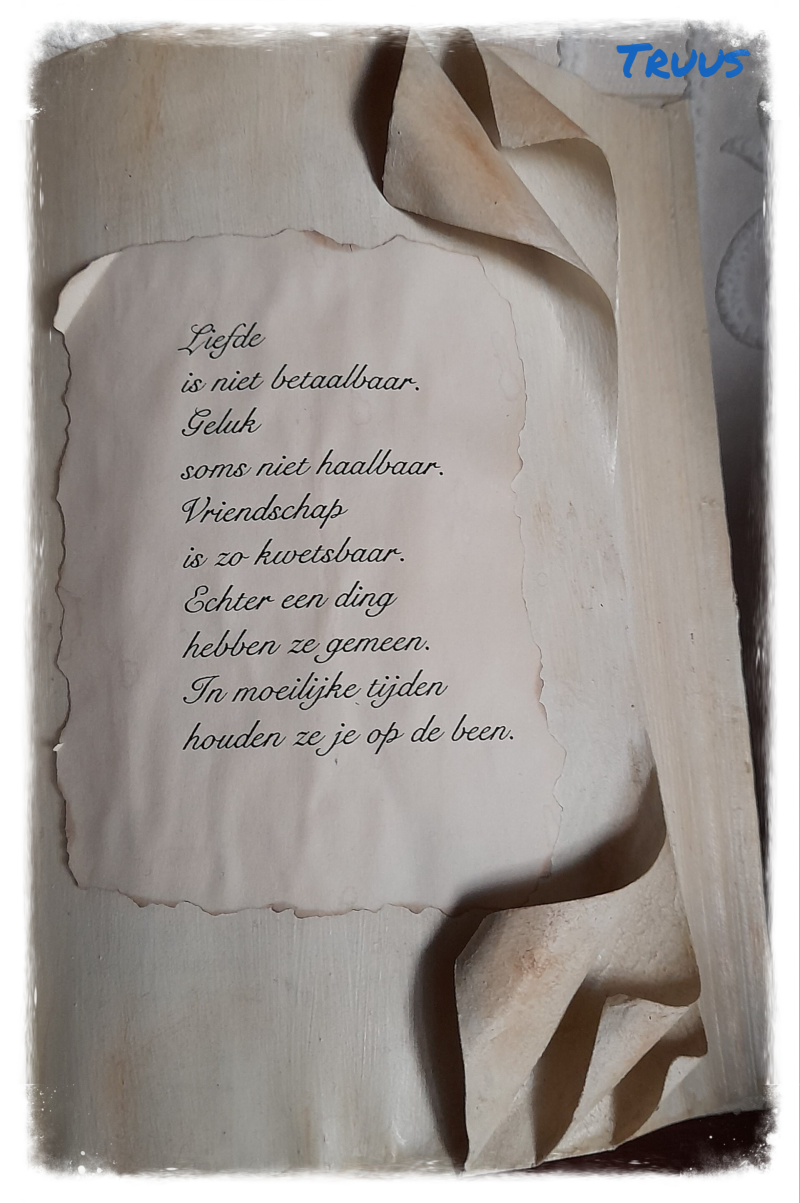 Truus
Liefde
is niet betaalbaar.
Geluk
soms niet haalbaar.
Vriendschap
is zo kwetsbaar.
Echter een ding
hebben ze gemeen.
In moeilijke tijden
houden ze je op de been.